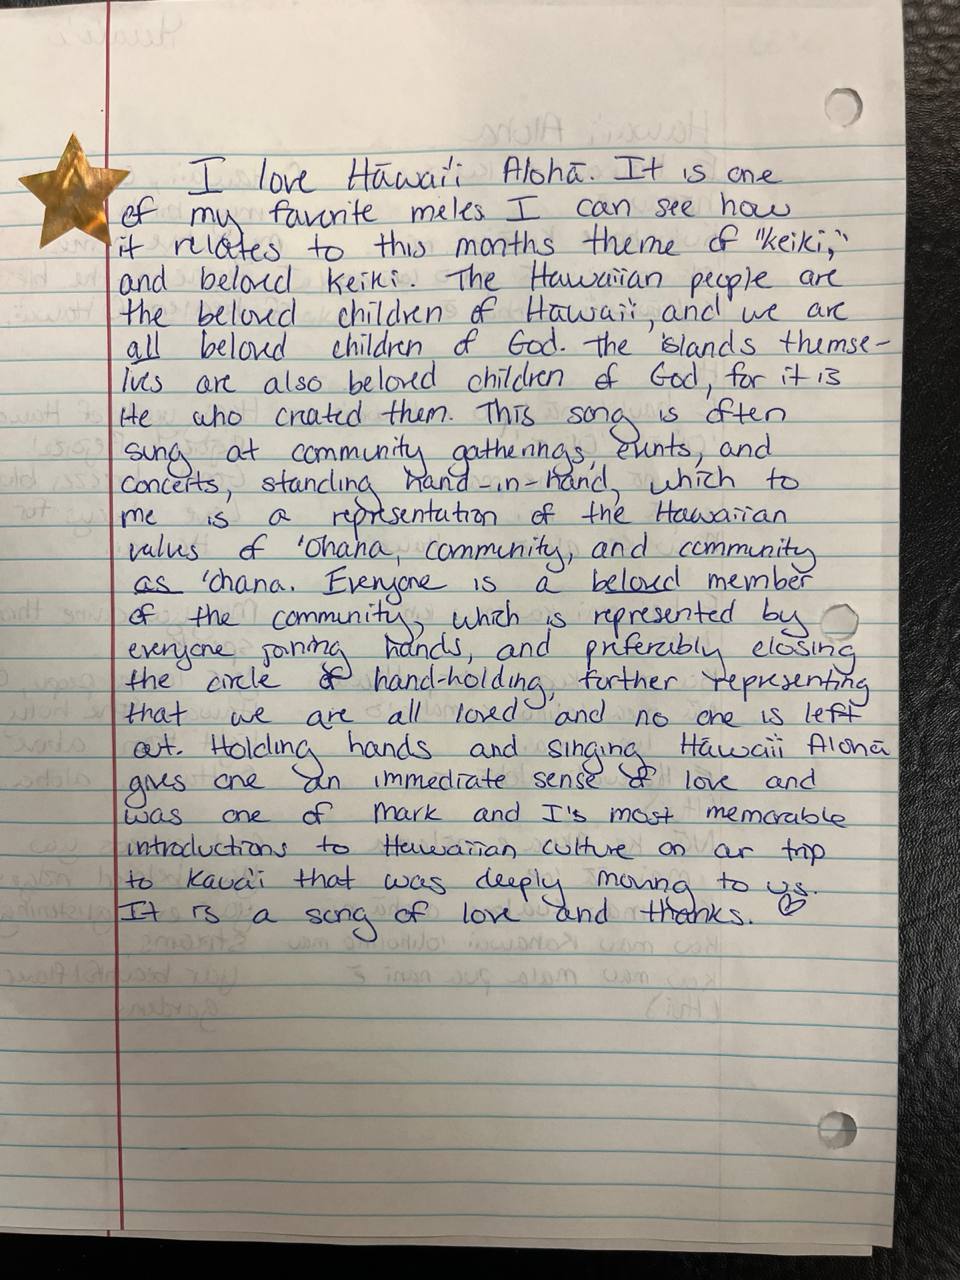 I love Hāwai'i Alohā. It is one
of my favorite meles I can see how
it relates to this months theme of "keiki,"
and beloved keiki. The Hawaiian people are
the beloved children of Hāwaii, and we are
all beloved children of God. The islands themse-
lves are also beloved children of God, for it is
He who created them. This song is often
sung at community gatherings, events, and
concerts, standing hand-in-hand, which to
me is a representation of the Hawaiian
values of 'Ohana, community, and community
as 'ohana. Everyone is a beloved member
of the community, which is represented by
everyone joining hands, and preferably closing
the circle of hand-holding, further representing
that we are all loved and no one is left
out. Holding hands and singing Hāwaii Alohā
gives one an immediate sense of love and
was one of Mark and I's most memorable
introductions to Hawaiian culture on our trip
to Kaua'i that was deeply moving to us.
It is a song of love and thanks.